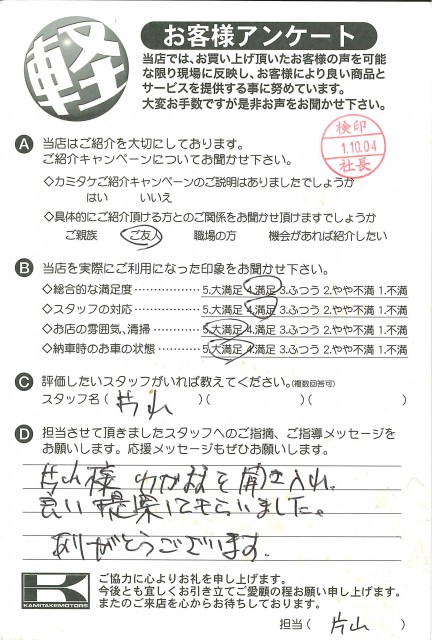 軽
お客様アンケート
当店では、お買い上げ頂いたお客様の声を可能
な限り現場に反映し、お客様により良い商品と
サービスを提供する事に努めています。
大変お手数ですが是非お声をお聞かせ下さい。
検印
1.10.04
社長
A 当店はご紹介を大切にしております。
ご紹介キャンペーンについてお聞かせ下さい。
◇カミタケご紹介キャンペーンのご説明はありましたでしょうか
はい いいえ
◇具体的にご紹介頂ける方とのご関係をお聞かせ頂けますでしょうか
ご親族 ご友人 職場の方 機会があれば紹介したい
B 当店を実際にご利用になった印象をお聞かせ下さい。
◇総合的な満足度 ………… 5.大満足 4.満足 3.ふつう 2.やや不満 1.不満
◇スタッフの対応 ………… 5.大満足 4.満足 3.ふつう 2.やや不満 1.不満
◇お店の雰囲気、清掃 ……… 5.大満足 4.満足 3.ふつう 2.やや不満 1.不満
◇納車時のお車の状態 ……… 5.大満足 4.満足 3.ふつう 2.やや不満 1.不満
C 評価したいスタッフがいれば教えてください。(複数回答可)
スタッフ名( 片山 )( )( )
D 担当させて頂きましたスタッフへのご指摘、ご指導メッセージを
お願いします。応援メッセージもぜひお願いします。
片山様 わがままを聞き入れ
良い提案してもらいました。
ありがとうございます.
K
KAMITAKEMOTORS
ご協力に心よりお礼を申し上げます。
今後とも宜しくお引き立てご愛顧の程お願い申し上げます。
またのご来店を心からお待ちしております。
担当( 片山 )